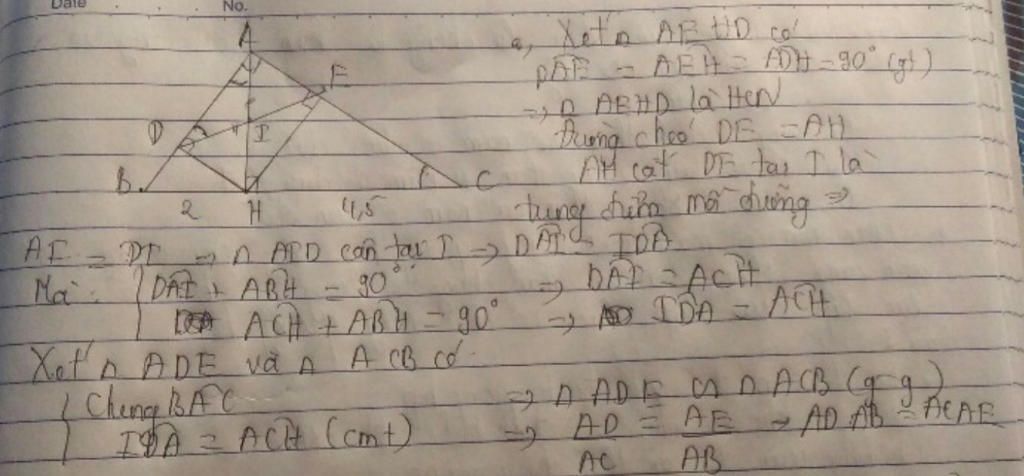 Date No.
A
E
D
I
B
C
2 H 4,5
a, Xét △ AEHD có
DAE = AEH = ADH = 90° (gt)
=> △ AEHD là HCN
Đường chéo DE = AH
AH cắt DE tại I là
trung điểm mỗi đường =>
AI = DI → △ AID cân tại I → DAI = IDA
Mà: DAI + ABH = 90° => DAI = ACH
ACH + ABH = 90° => IDA = ACH
Xét △ ADE và △ ACB có
Chung BAC => △ ADE ∽ △ ACB (g-g)
IDA = ACH (cmt) => AD/AC = AE/AB → AD AB = AC AE